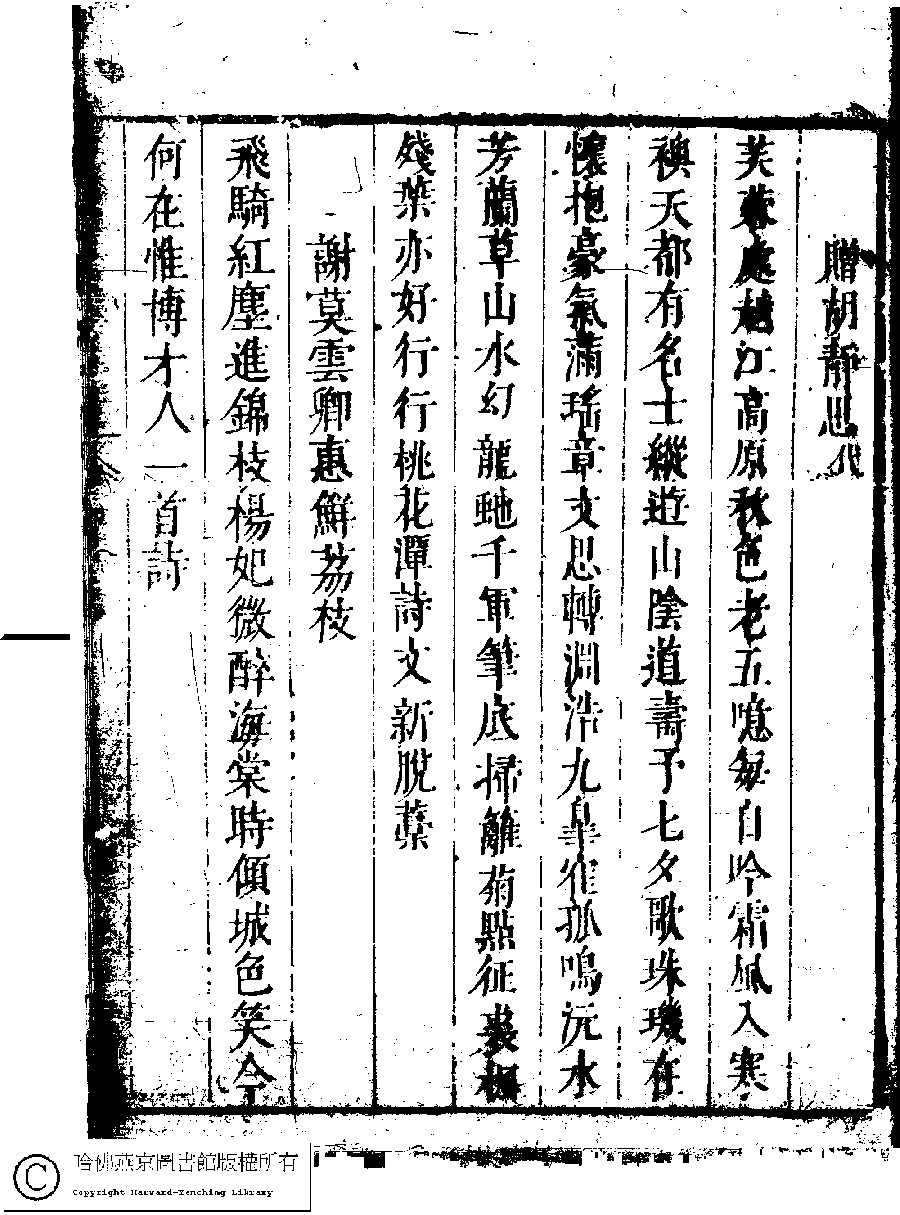 贈胡靜思
芙蓉處越江高原秋色老五噫每自吟霜風入寒
襖天都有名士縱遊山陰道壽予七夕歌珠璣在
懷抱豪氣滿瑤章文思轉淵浩九皐隺孤鳴沅水
芳蘭草山水幻龍虵千軍筆底掃籬菊點征裘楓
殘葉亦好行行桃花潭詩文新脫藁
謝莫雲卿惠鮮荔枝
飛騎紅塵進錦枝楊妃微醉海棠時傾城色笑今
何在惟博才人一首詩
哈佛燕京圖書館版權所有
Copyright Harvard-Yenching Library